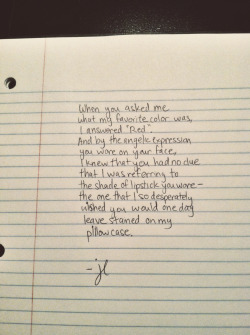 When you asked me
what my favorite color was,
I answered "Red".
And by the angelic expression
you wore on your face,
I knew that you had no clue
that I was referring to
the shade of lipstick you wore—
the one that I so desperately
wished you would one day
leave stained on my
pillowcase.